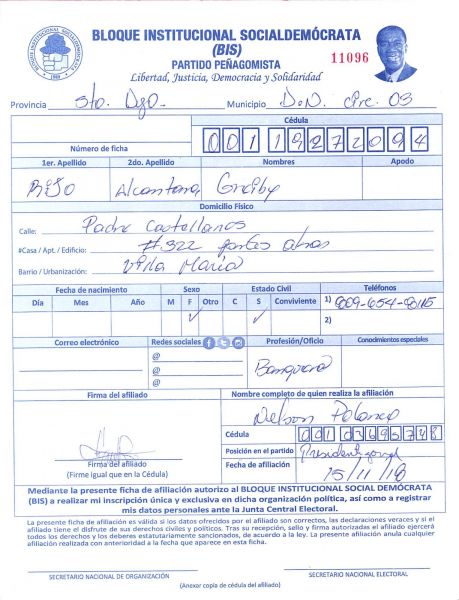 BLOQUE INSTITUCIONAL SOCIALDEMÓCRATA
(BIS)
PARTIDO PEÑAGOMISTA
11096
Libertad, Justicia, Democracia y Solidaridad
Provincia Sto. Dgo. Municipio D.N. Circ. 03
Cédula
Número de ficha 001 1927209 4
1er. Apellido 2do. Apellido Nombres Apodo
Rijo Alcantara Greiby
Domicilio Físico
Calle: Padre Castellanos
#Casa / Apt. / Edificio: #322 partes atras
Barrio / Urbanización: Villa Maria
Fecha de nacimiento Sexo Estado Civil Teléfonos
Día Mes Año M F Otro C S Conviviente 1) 809-654-
✓ ✓ 2)
Correo electrónico Redes sociales Profesión/Oficio Conocimientos especiales
@
@ Banquera
@
Firma del afiliado Nombre completo de quien realiza la afiliación
Nelson Polanco
Cédula 001 0369574 8
Posición en el partido President
Firma del afiliado Fecha de afiliación 15/11/18
(Firme igual que en la Cédula)
Mediante la presente ficha de afiliación autorizo al BLOQUE INSTITUCIONAL SOCIAL DEMÓCRATA
(BIS) a realizar mi inscripción única y exclusiva en dicha organización política, así como a registrar
mis datos personales ante la Junta Central Electoral.
La presente ficha de afiliación es válida si los datos ofrecidos por el afiliado son correctos, las declaraciones veraces y si el afiliado
tiene el disfrute de sus derechos civiles y políticos. Tras su recepción, sello y firma autorizados el afiliado ejercerá
todos los derechos y los deberes estatutariamente sancionados, de acuerdo a la ley. La presente afiliación anula cualquier
afiliación realizada con anterioridad a la fecha que aparece en esta ficha.
SECRETARIO NACIONAL DE ORGANIZACIÓN SECRETARIO NACIONAL ELECTORAL
(Anexor copia de cédula del afiliado)